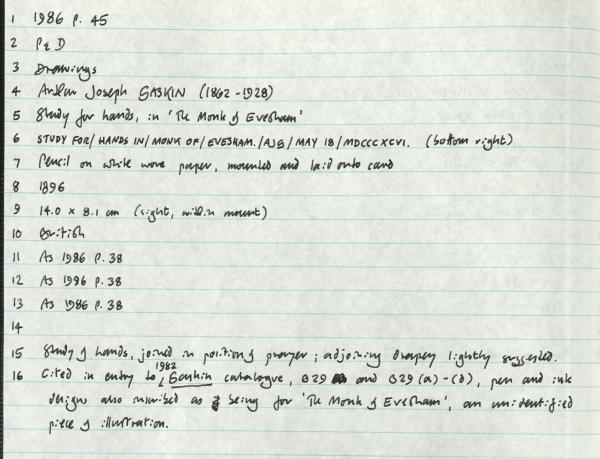 1 1986 P. 45
2 P & D
3 Drawings
4 Arthur Joseph GASKIN (1862-1928)
5 Study for hands, in 'The Monk of Evesham'
6 STUDY FOR/ HANDS IN/ MONK OF/ EVESHAM./AJG/ MAY 18/ MDCCCXCVI. (bottom right)
7 Pencil on white wove paper, mounted and laid onto card
8 1896
9 14.0 x 8.1 cm (sight, within mount)
10 British
11 As 1986 P. 38
12 As 1996 P. 38
13 As 1986 P. 38
14
15 Study of hands, joined in position of prayer; adjoining drapery lightly suggested.
16 Cited in entry to 1982 Gaskin catalogue, B29 and B29 (a)-(d), pen and ink
designs also inscribed as being for 'The Monk of Evesham', an unidentified
piece of illustration.